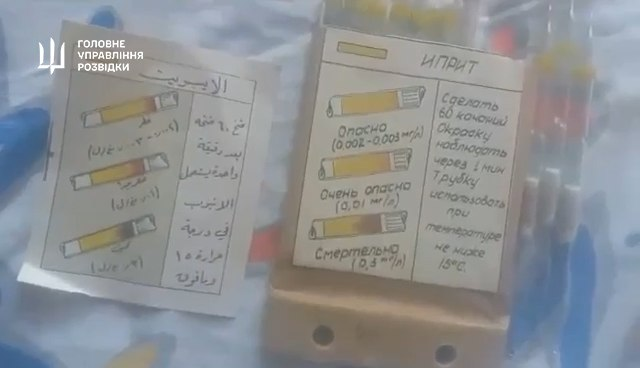 ГОЛОВНЕ
УПРАВЛІННЯ
РОЗВІДКИ
الايبريت
خطر
بعد دقيقة
واحدة يتحمل
الانبوب
في درجة
حرارة ١٥
ومافوق
ИПРИТ
Опасно
(0,002-0,003 мг/л)
Очень опасно
(0,01 мг/л)
Смертельно
(0,3 мг/л)
Сделать
60 качаний
Окраску
наблюдать
через 1 мин
Трубку
использовать
при
температуре
не ниже
15°С.